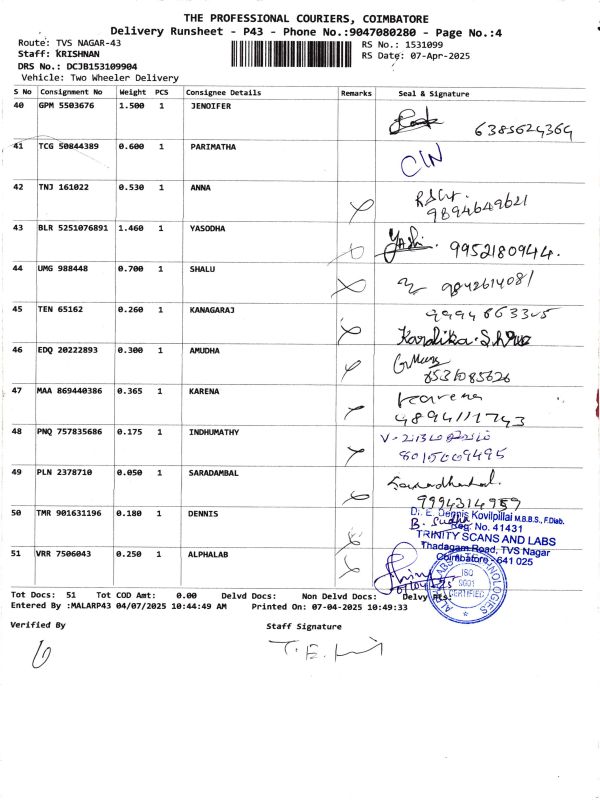 THE PROFESSIONAL COURIERS, COIMBATORE
Delivery Runsheet - P43 - Phone No.:9047080280 - Page No.:4
Route: TVS NAGAR-43
RS No.: 1531099
Staff: KRISHNAN
RS Date: 07-Apr-2025
DRS No.: DCJB153109904
Vehicle: Two Wheeler Delivery
S No Consignment No Weight PCS Consignee Details Remarks Seal & Signature
40 GPM 5503676 1.500 1 JENOIFER
6385624364
41 TCG 50844389 0.600 1 PARIMATHA
CIN
42 TNJ 161022 0.530 1 ANNA
9894649621
43 BLR 5251076891 1.460 1 YASODHA
Yashi. 9952180944.
44 UMG 988448 0.700 1 SHALU
9842614081
45 TEN 65162 0.260 1 KANAGARAJ
46 EDQ 20222893 0.300 1 AMUDHA
47 MAA 869440386 0.365 1 KARENA
Karena
48 PNQ 757835686 0.175 1 INDHUMATHY
49 PLN 2378710 0.050 1 SARADAMBAL
9994314959
50 TMR 901631196 0.180 1 DENNIS
Dr. E. Dennis Kovilpillai M.B.B.S., F.Diab.
B. Sudha Reg: No. 41431
TRINITY SCANS AND LABS
Thadagam Road, TVS Nagar
Coimbatore - 641 025
51 VRR 7506043 0.250 1 ALPHALAB
ISO
9001
CERTIFIED
Tot Docs: 51 Tot COD Amt: 0.00 Delvd Docs: Non Delvd Docs: Delvy Pts:
Entered By :MALARP43 04/07/2025 10:44:49 AM Printed On: 07-04-2025 10:49:33
Verified By Staff Signature